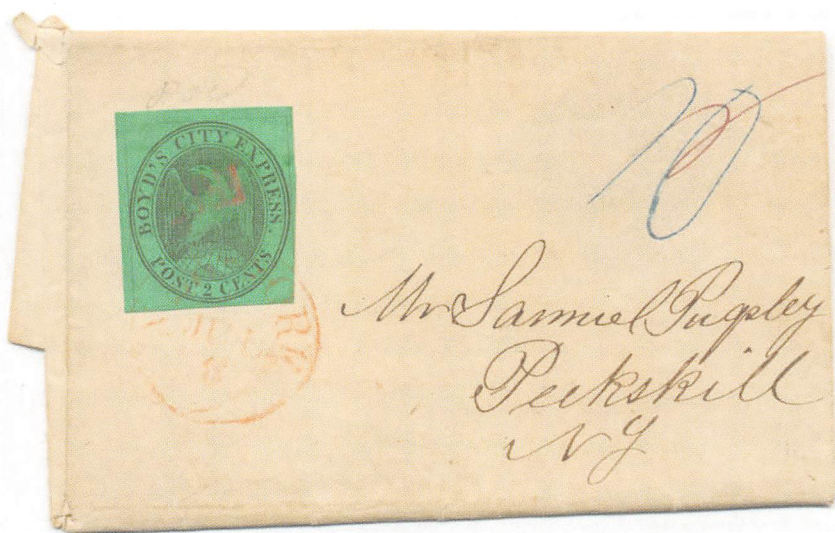 BOYD'S CITY EXPRESS.
POST 2 CENTS
10
Mr Samuel Pugsley
Peekskill
NY